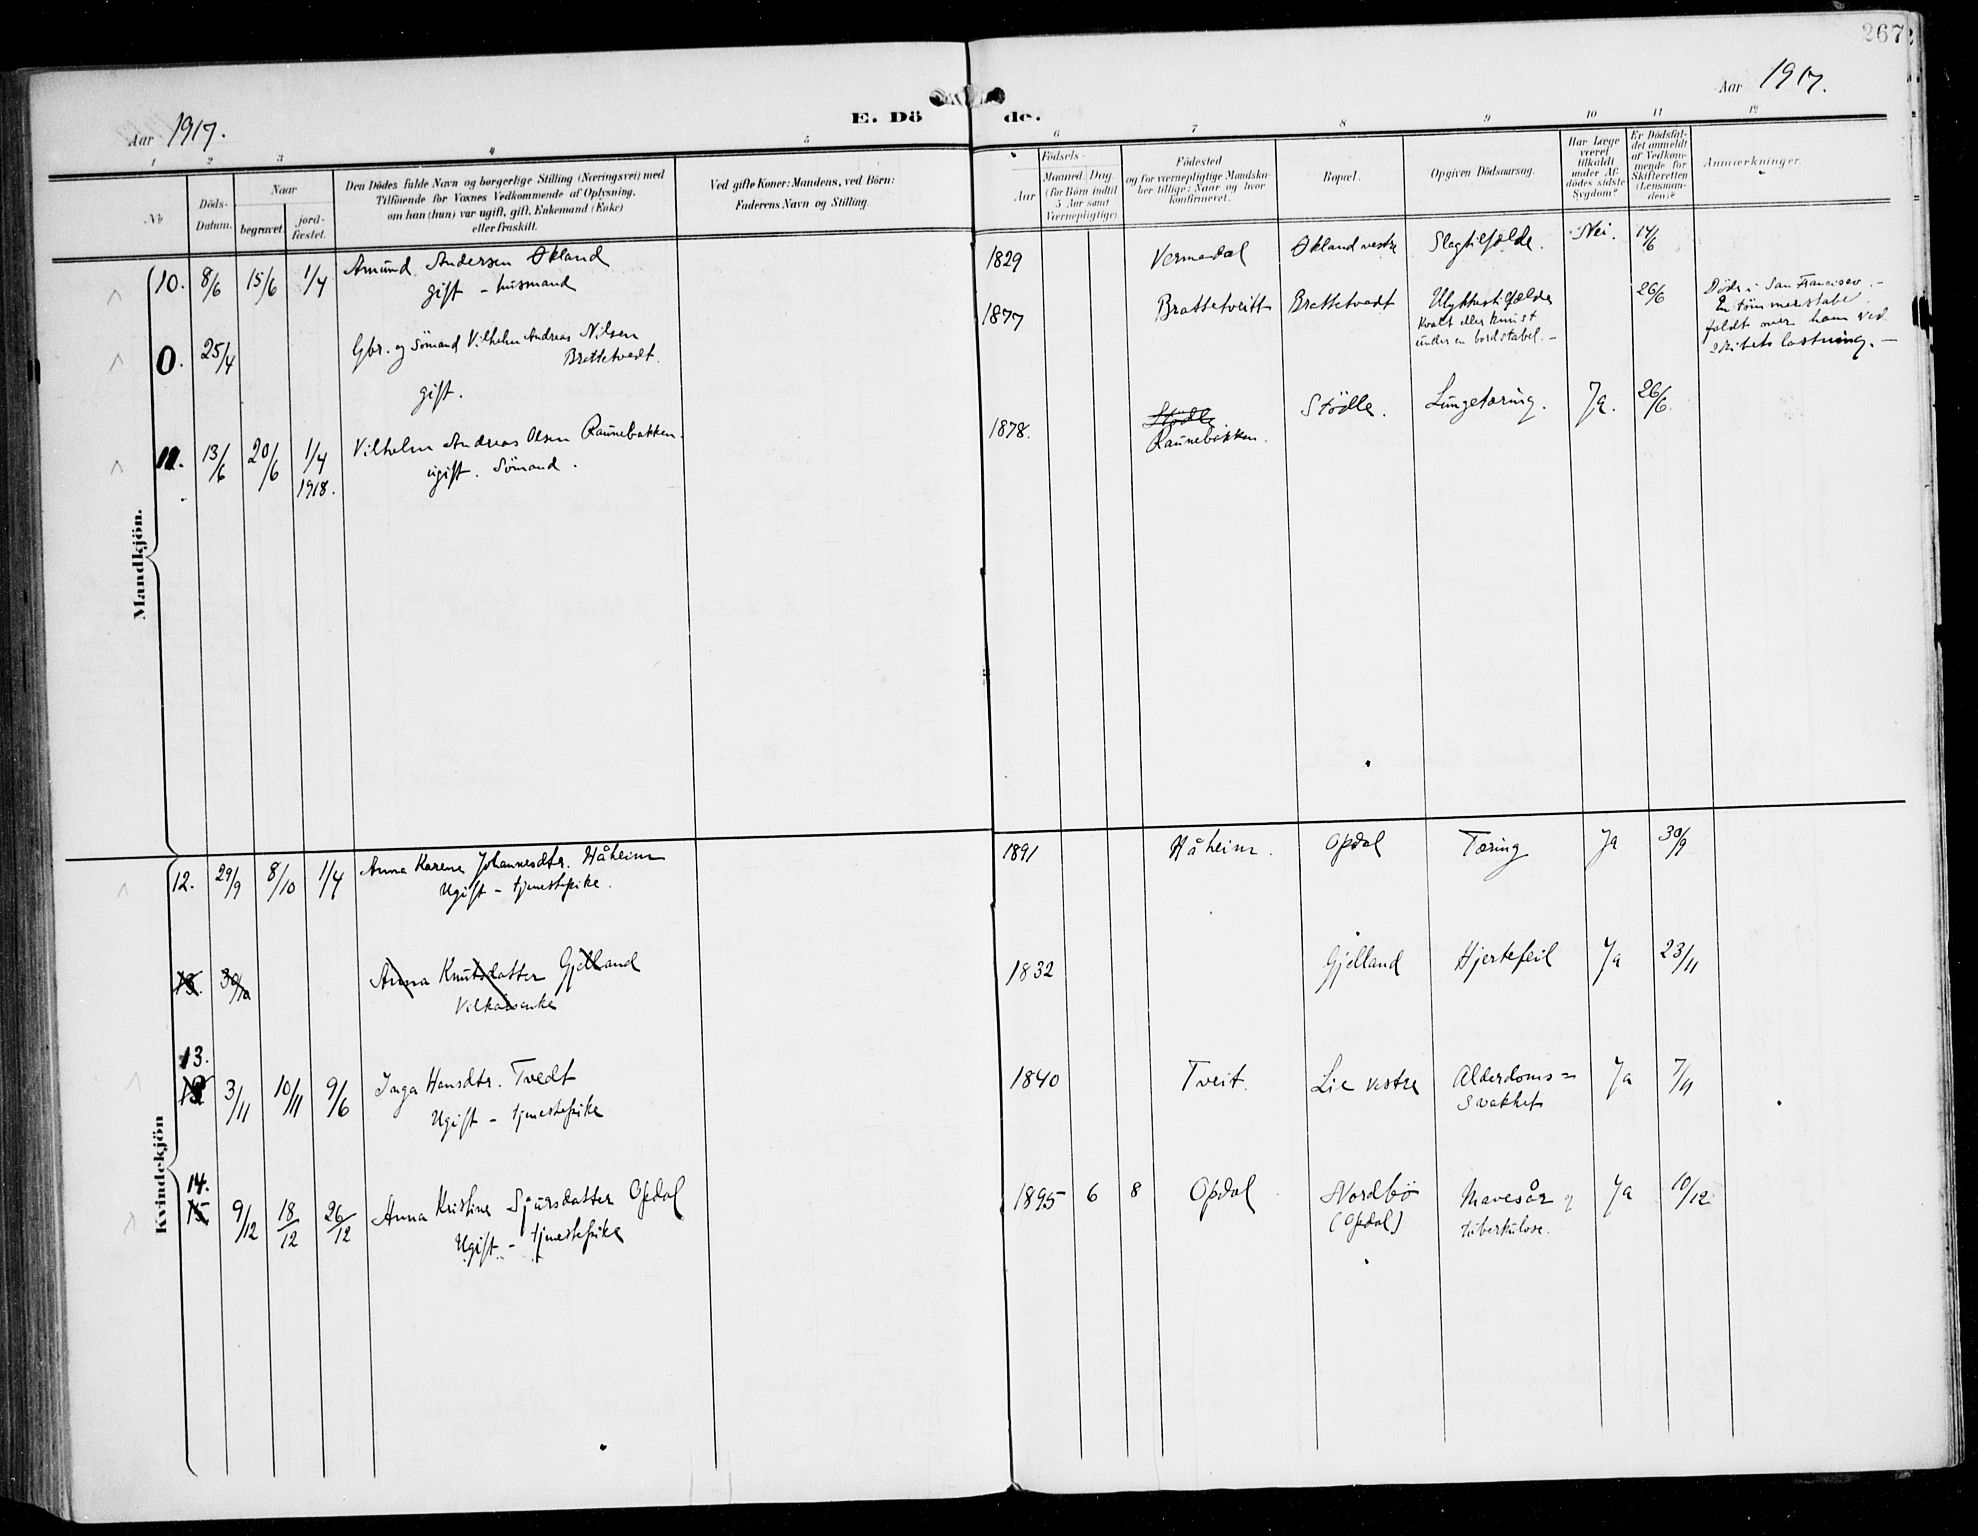 267
Aar 1917.
E. Döde.
Aar 1917.
1 2 3 4 5 6 7 8 9 10 11 12
No
Döds-Datum.
Naar
begravet.
jord-fæstet.
Den Dödes fulde Navn og borgerlige Stilling (Næringsvei) med
Tilföiende for Voxnes Vedkommende af Oplysning,
om han (hun) var ugift, gift, Enkemand (Enke)
eller fraskilt.
Ved gifte Koner: Mandens, ved Börn:
Faderens Navn og Stilling.
Födsels-
Aar
Maaned. Dag.
(for Börn indtil
5 Aar samt
Værnepligtige).
Födested
og for værnepligtige Mandska-
ber tillige: Naar og hvor
konfirmeret.
Bopæl.
Opgiven Dödsaarsag.
Har Læge
været
tilkaldt
under Af-
dödes sidste
Sygdom?
Er Dödsfal-
det anmeldt
af Vedkom-
mende for
Skifteretten
(Lensman-
den)?
Anmærkninger.
Mandkjön.
10. 8/6 15/6 1/4 Amund Andersen Økland 1829 Vermedal Økland vestre Slagtilfælde. Nei. 14/6
gift - husmand
0. 25/4 Gbr. og Sömand Vilhelm Andreas Nilsen 1877 Brattetveitt Brattetvedt Ulykkestilfælde 26/6 Döde i San Francisco. -
Brattetvedt. Kvalt eller knust En tömmerstabel
under en bordstabel. - faldt over ham ved
gift. skibets lastning. -
11. 13/6 20/6 1/4 Vilhelm Andreas Olsen Raunebakken. 1878. Stödle Stödle. Lungetæring. Ja. 26/6.
1918. ugift. Sömand. Raunebakken.
Kvindekjön
12. 29/9 8/10 1/4 Anna Karene Johannesdtr. Håheim 1891 Håheim. Opdal Tæring Ja 30/9
Ugift - tjenestepike.
13. 30/10 Anna Knutsdatter Gjelland 1832 Gjelland Hjertefeil Ja 23/11
Vilkårsenke
13.
3/11 10/11 9/6 Inga Hansdtr. Tvedt 1840 Tveit. Lie vestre Alderdoms= Ja 7/11
Ugift - tjenestepike svakhet
14.
15 9/12 18/12 26/12 Anna Kristine Sjursdatter Opdal 1895 6 8 Opdal Nordbö Mavesår og Ja 10/12
Ugift - tjenestepike (Opdal) tuberkulose.